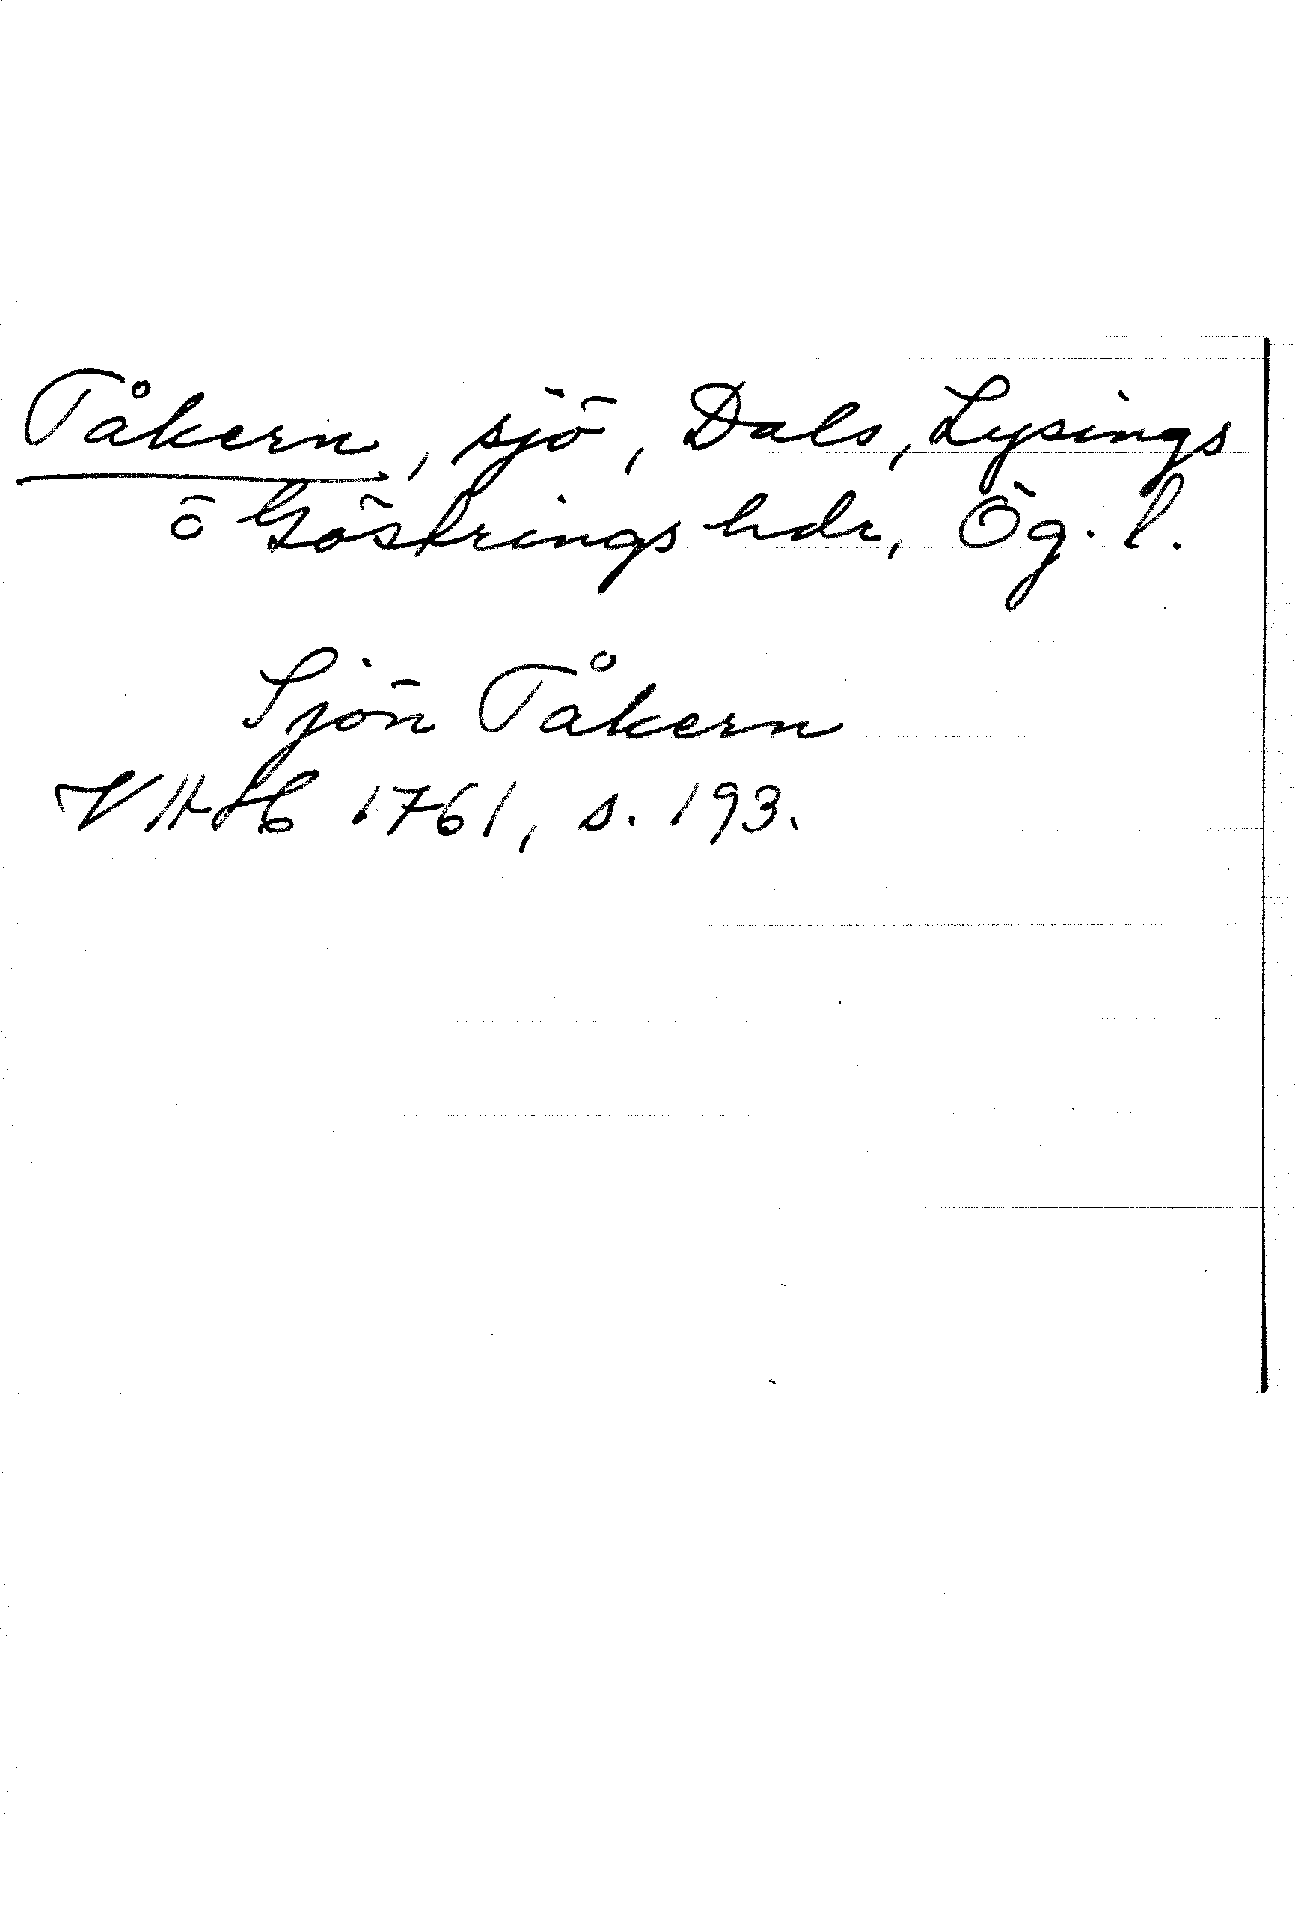 Tåkern, sjö, Dals, Lysings
o Göstrings hdr, Ög. l.
Sjön Tåkern
VAH 1761, s. 193.